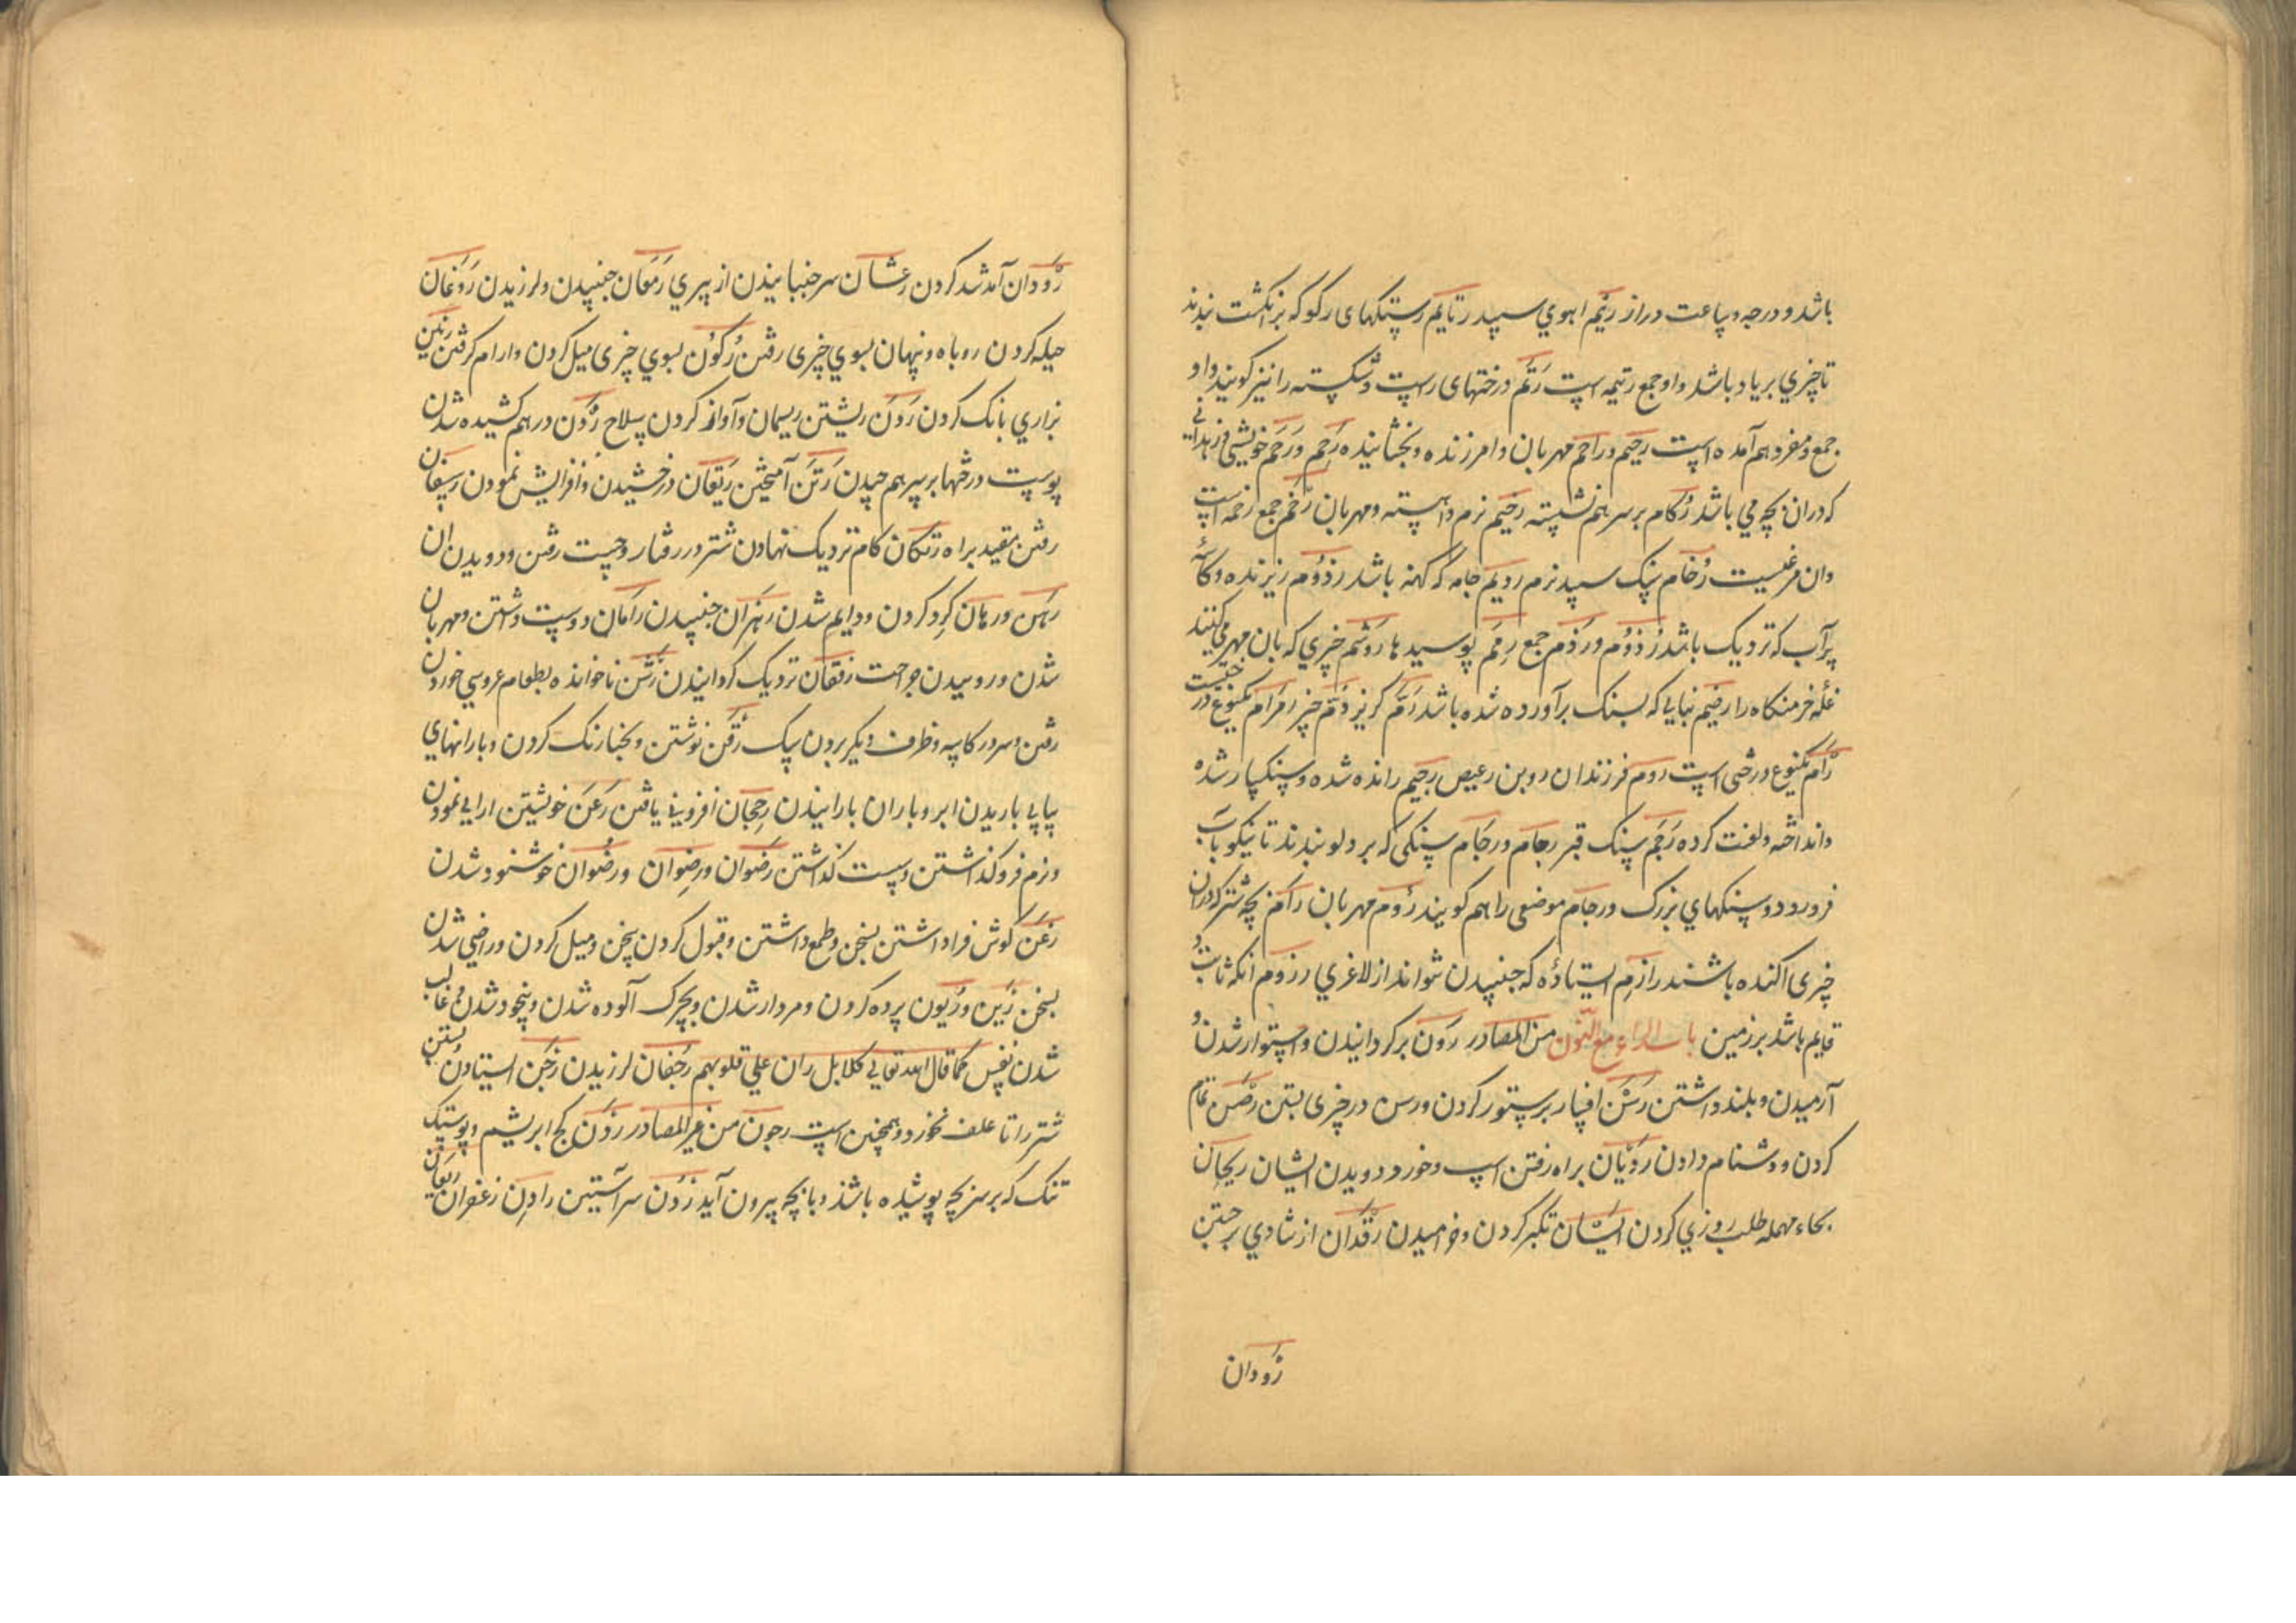 باشد و درجه و ساعت دراز رئیم اهوي سپید رتایم رستنکهای رکو که بر انکشت بندند
تا چیزي بریاد باشد و او جمع رتیمه است رتم درختهای رست و شکسته را نیز کویند و او
جمع و مفرد هم آمده است رحیم و راحم مهربان و امرزنده و بخشاینده رحم و رحم خویشی
که دران بچه می باشد رکام بر سر هم نشسته رخیم نرم و اهسته و مهربان رخم جمع رخمه است
وان مرغیست رخام سنک سپید نرم ردیم جامه که کهنه باشد رذوم ریزنده و کاسهٔ
پر آب که نزدیک باشد رذوم و رذم جمع رمم پوسیدها روشم چیزي که بان مهر می کنند
غلهٔ خرمنکاه را رضیم بنایی که بسنک برآورده شده باشد
درختی است روم فرزندان روبن رعیص رجیم رانده شده و سنکسار شده
و انداخته و لعنت کرده رجم سنک قبر رجام و رجام سنکی که بر دلو بندند تا نیکو باب
فرو رود و سنکهاي بزرک و رجام موضعی را هم کویند رؤم مهربان رامم بچه شتر که دران
چیزی اکنده باشند رازم استادهٔ که جنبیدن نتواند از لاغري رزوم انکه ثابت و
قایم باشد بر زمین باب الراء مع النون من المصادر رون برکردانیدن و استوار شدن و
آرمیدن و بلند داشتن رسن افسار بر ستور کردن و رسن در چیزی بستن رصن تمام
کردن و دشنام دادن ردیان براه رفتن اسب و خورد دویدن ایشان ریحان
بحاء مهمله طلب روزي کردن تکبر کردن و خرامیدن رقدان از شادي برجستن
رودان
رودان آمد شد کردن رعشان سر جنبانیدن از پیري رمعان جنبیدن و لرزیدن روغان
حیله کردن روباه و پنهان بسوي چیزی رفتن رکون بسوي چیزی میل کردن و ارام کرفتن رنین
بزاري بانک کردن ردن ریشتن ریسمان و آواز کردن سلاح ردن درهم کشیده شدن
پوست رختها بر سر هم چیدن رتن آمیختن ریعان درخشیدن و افزایش نمودن رسفان
رفتن بقید براه رتکان کام نزدیک نهادن شتر در رفتار و چست رفتن و دویدن ان
رهن و رهان کرد کردن و دایم شدن رهزان جنبیدن رامان دوست داشتن و مهربان
شدن و روییدن جراحت رفعان نزدیک کردانیدن رشن ناخوانده بطعام عروسي خوردن
رفتن و سر در کاسه و ظرف دیکر بردن سک رقن نوشتن و بحنا رنک کردن و بارانهاي
پیاپي باریدن ابر و باران بارانیدن رجحان افزوني یافتن رعن خویشتن ارایي نمودن
و نرم فروکذاشتن و سست کذاشتن رضوان و رضوان و رضوان خوشنود شدن
رغن کوش فرا داشتن بسخن و طمع داشتن و قبول کردن سخن و میل کردن و راضي شدن
بسخن رین و ریون پرده کردن و مردار شدن و بچرک آلوده شدن و بیخود شدن و غالب
شدن نفس کما قال الله تعالي کلا بل ران علي قلوبهم رجفان لرزیدن رجن استادن و بستن
شتر را تا علف نخورد و همچنین است رجون من غیر المصادر ردن کج ابریشم و پوستک
تنک که بر سر بچه پوشیده باشد و با بچه بیرون آید ردن سر آستین رادن زعفران ریعان